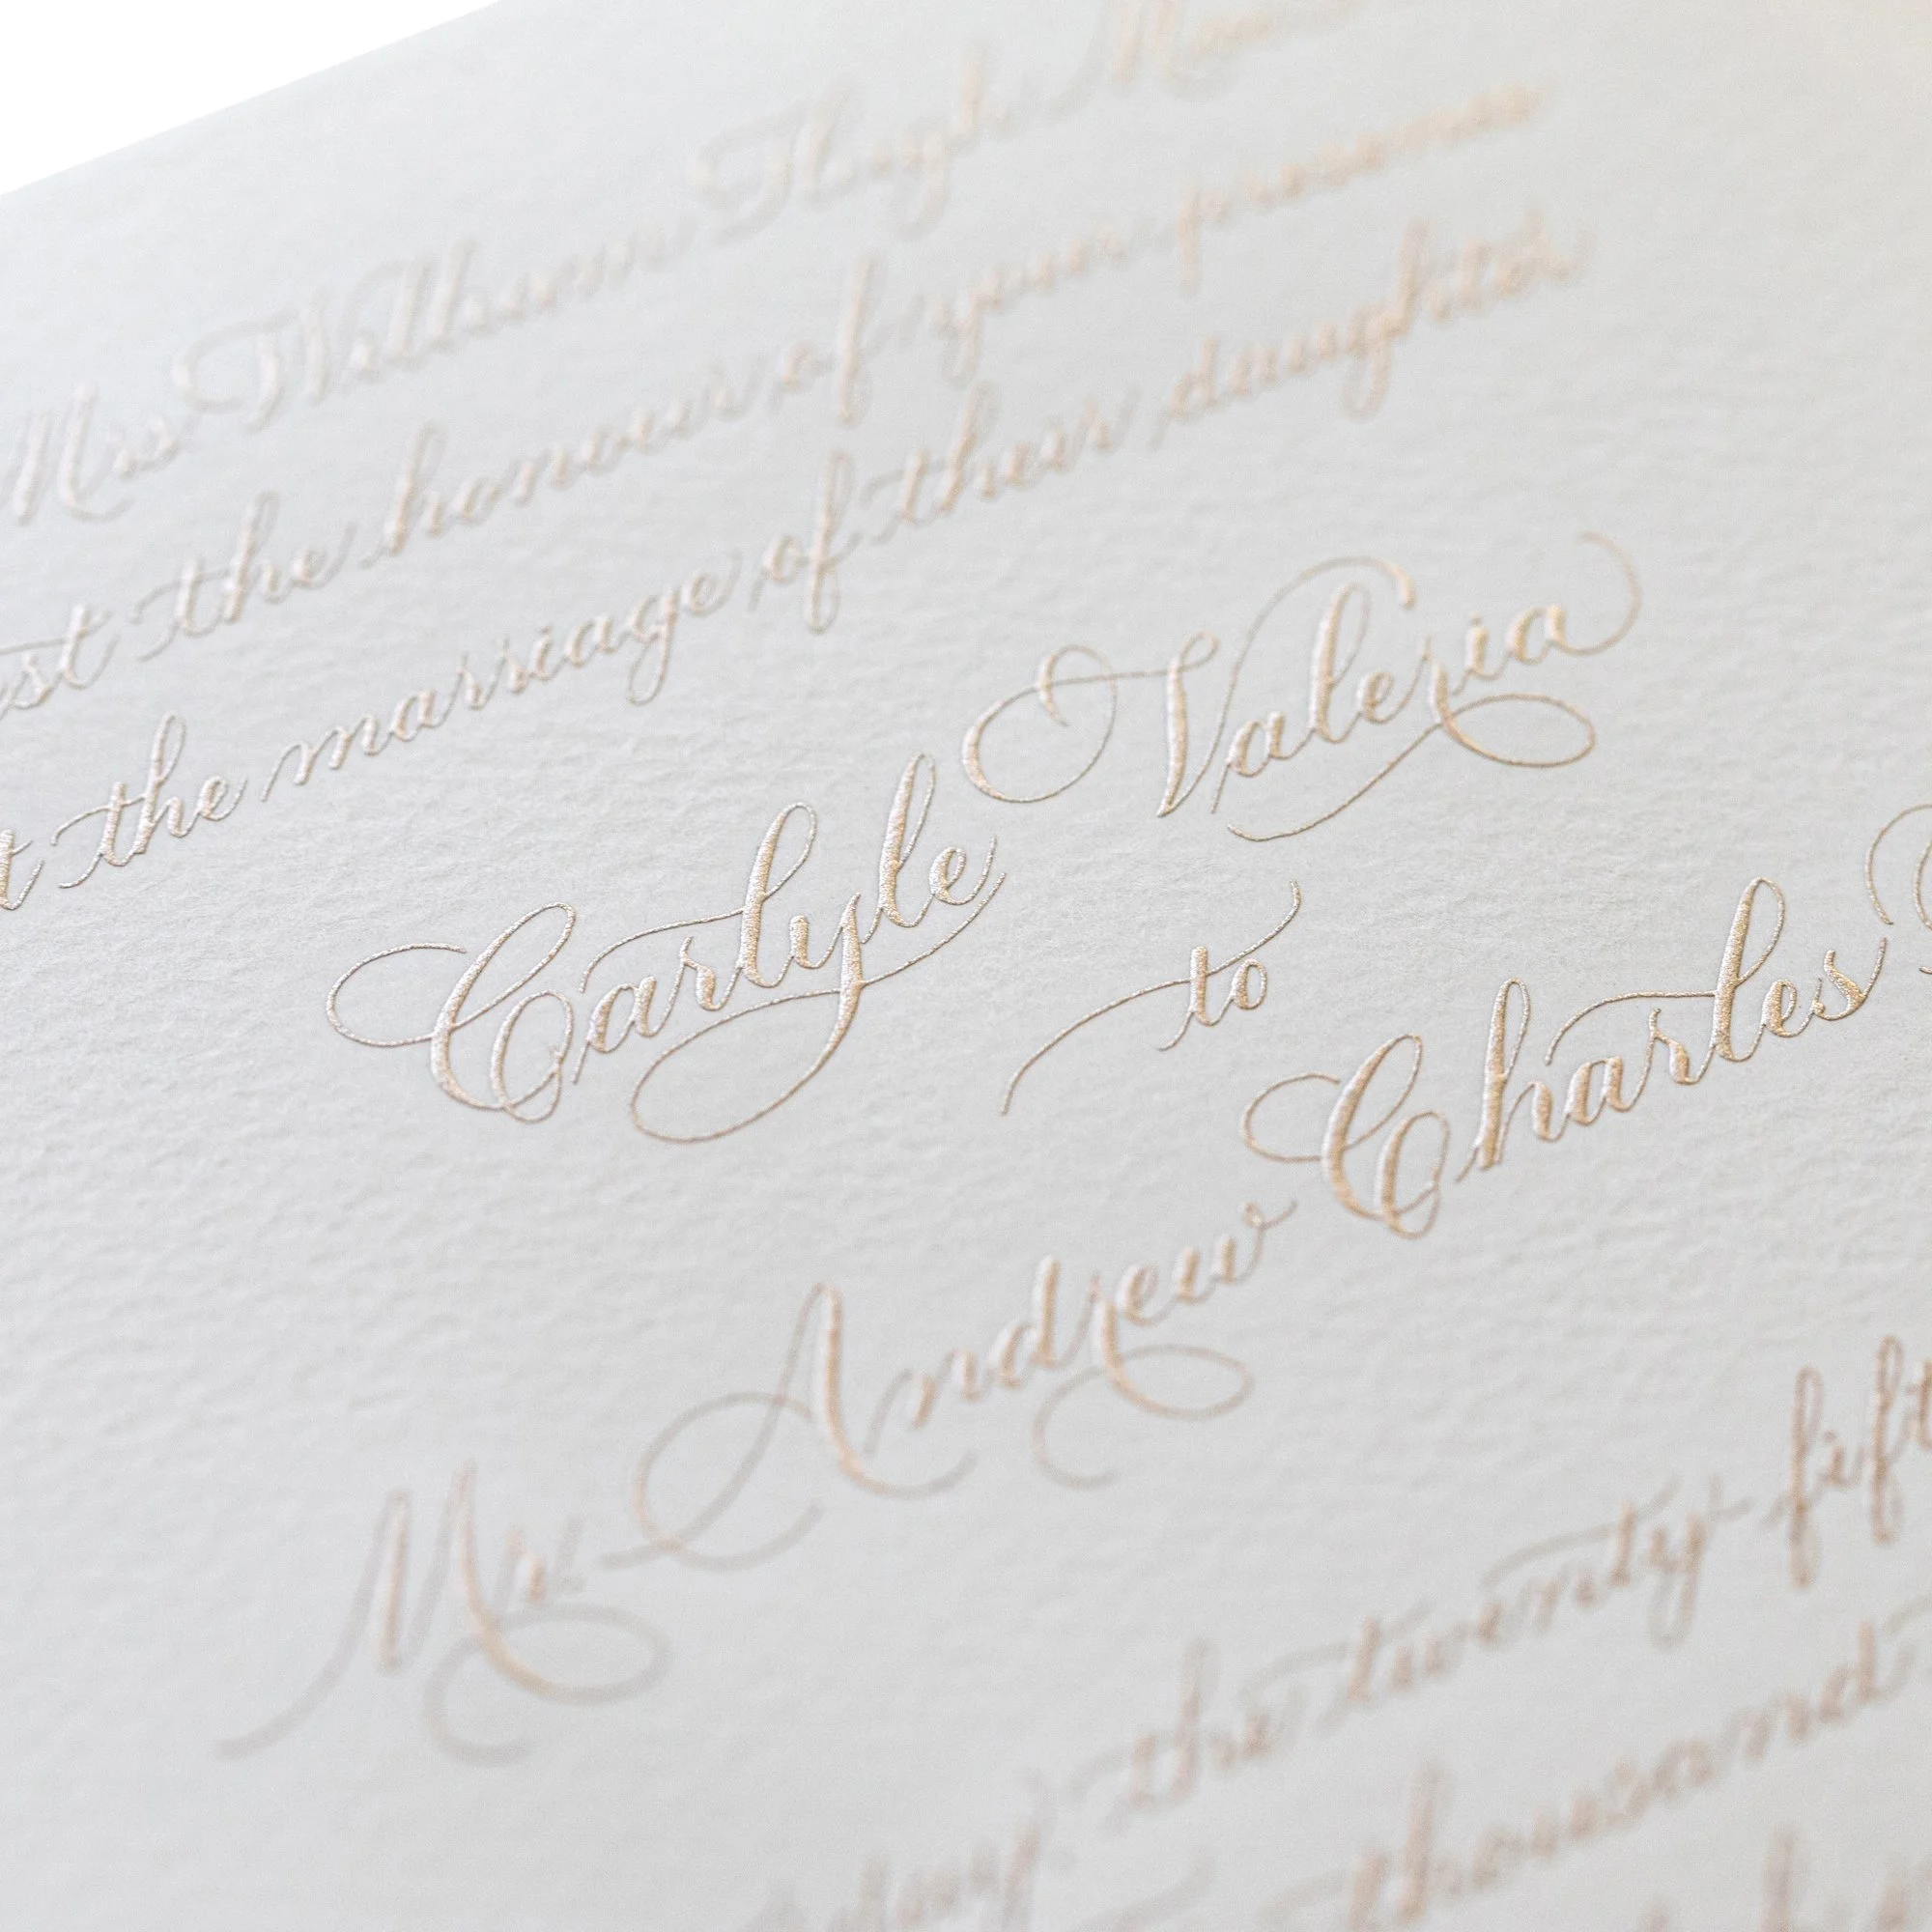 Mrs William Hugh
the honour of your presence
the marriage of their daughter
Carlyle Valeria
to
Mr. Andrew Charles
the twenty fift
thousand